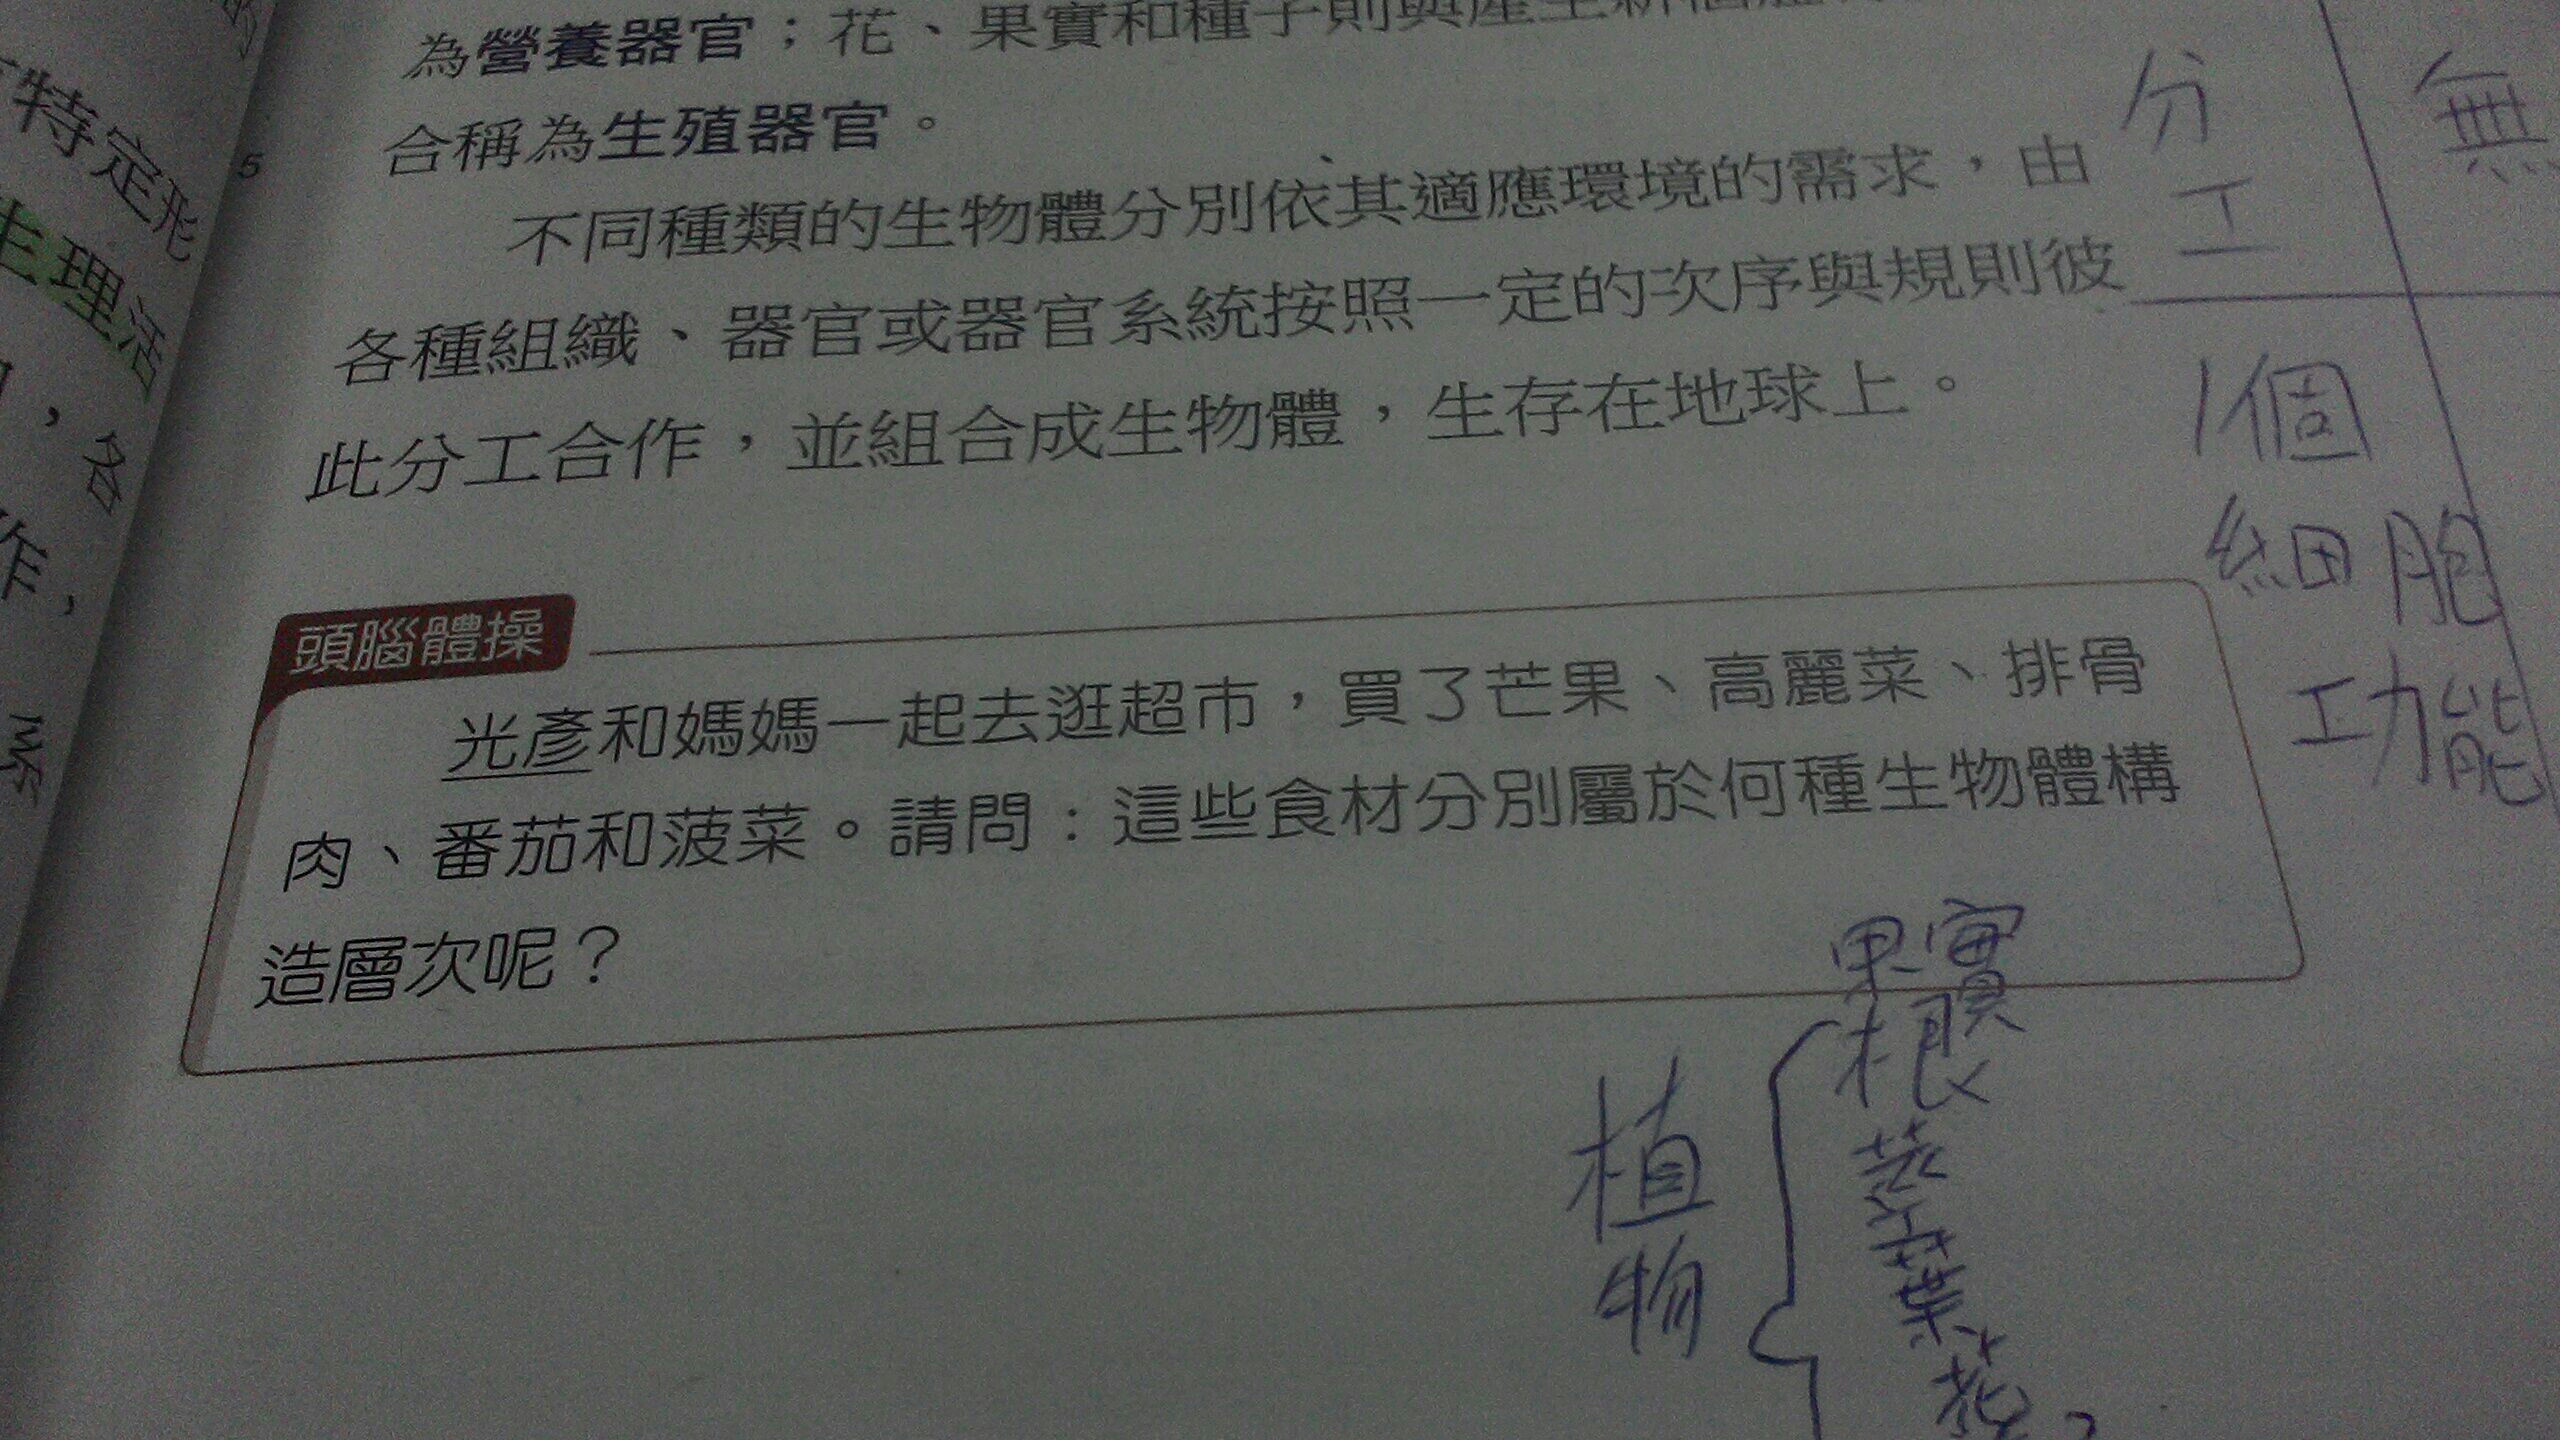 為營養器官；花、果實和種子則與產生新個體
合稱為生殖器官。
5
不同種類的生物體分別依其適應環境的需求，由
各種組織、器官或器官系統按照一定的次序與規則彼
此分工合作，並組合成生物體，生存在地球上。
頭腦體操
光彥和媽媽一起去逛超市，買了芒果、高麗菜、排骨
肉、番茄和菠菜。請問：這些食材分別屬於何種生物體構
造層次呢？
特定形
生理活
，各
作，
系
分
工
無
1個
細胞
功能
植
物
果實
根
莖
葉
花